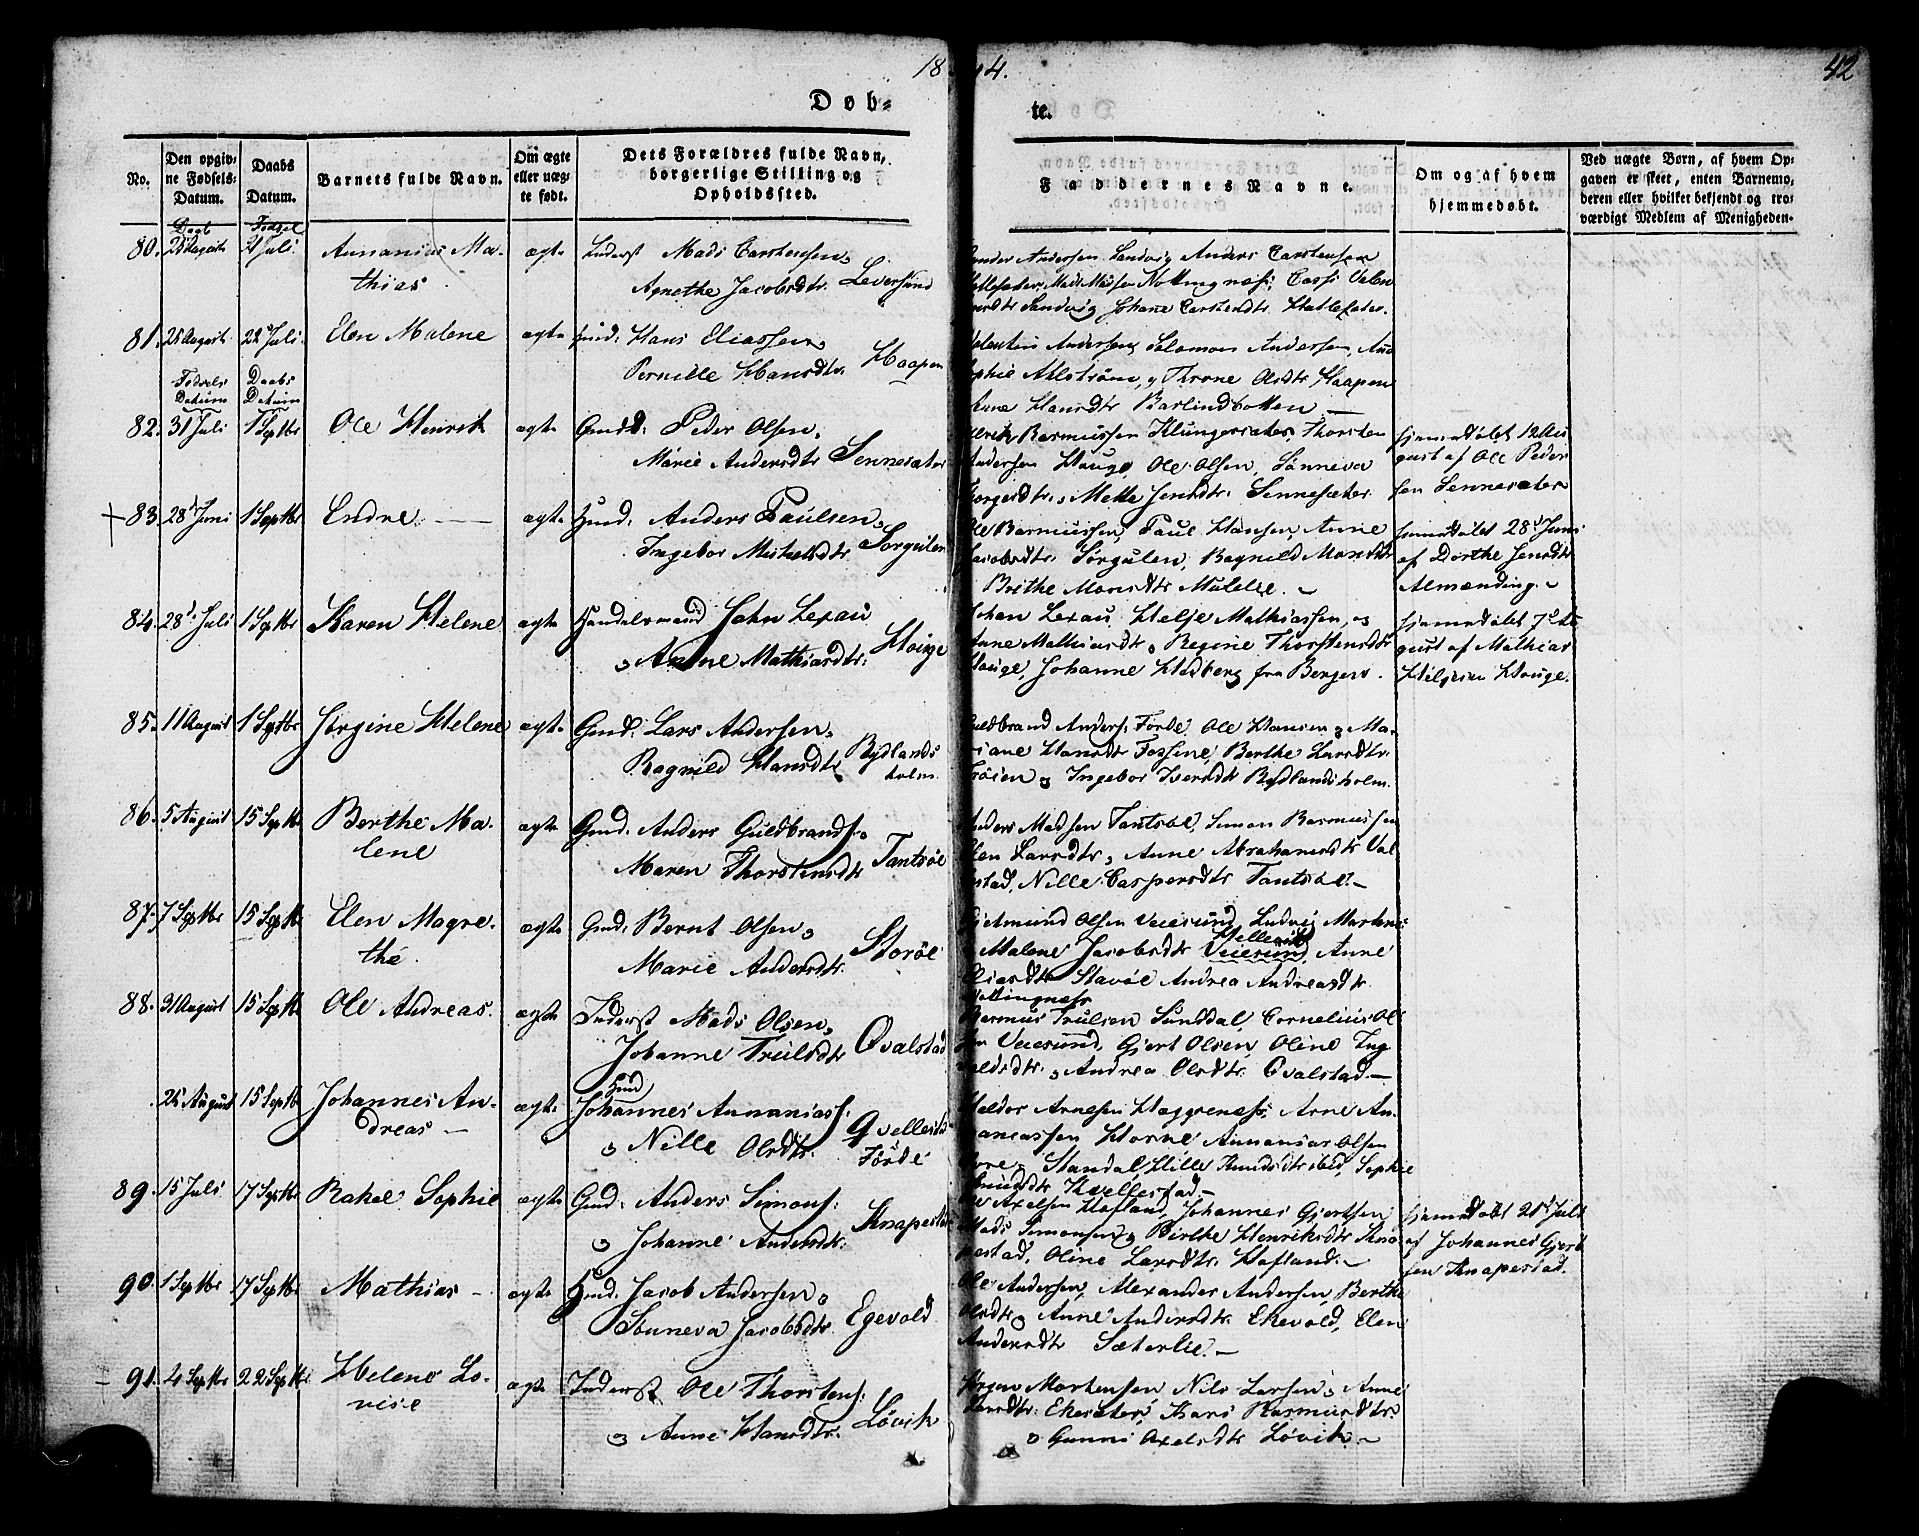 18
44.
42
Døb=
te.
No.
Den opgiv=
ne Fødsels=
Datum.
Daabs
Datum.
Barnets fulde Navn.
Om ægte
eller uæg=
te født.
Dets Forældres fulde Navn,
borgerlige Stilling og
Opholdssted.
Faddernes Navne.
Om og af hvem
hjemmedøbt.
Ved uægte Børn, af hvem Op=
gaven er skeet, enten Barnemo=
deren eller hvilket bekjendt og tro=
værdigt Medlem af Menigheden.
Daab
Fødsel
80. 25 August 21 Juli Annanias Ma=
thias
ægte Inderst Mads Carstensen
Agnethe Jacobsdtr. Leversund
Andersen Sandvig Anders Carstensen
Mads Madsen Nottingnæs, Valen
Sandvig Johane Carstendtr.
81. 25 August 22 Juli Elen Malene ægte Huusm. Hans Eliassen
Pernille Hansdtr. Haapen
Valentin Andersen Salomon Andersen,
Sophie Ahlstrøm, Throne Olsdtr Haapen
Anne Hansdtr Barlindbotten —
Fødsels
Datum
Daabs
Datum
82. 31 Juli 1 Septbr Ole Henrik ægte Gmd. Peder Olsen,
Marie Andersdtr Sennesæter
Rasmussen Klungersæter, Thorsten
Andersen Houge, Ole Olsen, Sønneva
Mette Jensdtr. Sennesæter.
hjemmedøbt 1 Au
gust af Ole Peder
sen Sennesæter
+ 83. 28 Juni 1 Septbr Endre — ægte Huusm. Anders Paulsen
Ingebor Mikkelsdtr. Sørgulen
Ole Rasmussen, Paul Hansen, Anne
Jacobsdtr. Sørgulen, Ragnild Monsdtr
Brithe Monsdtr Mulelie. —
hjemmedøbt 28 Juni
af Dorthe Jensdtr
Almænding. —
84. 28 Juli 1 Septbr Karen Helene ægte Handelsmand John Lexau
o Anne Mathiasdtr. Houge
Johan Lexau, Helje Mathiassen, o
Anne Mathiasdtr o Regine Thorstensdtr
Houge, Johanne Hedberg fra Bergen.
hjemmedøbt 7 Au
gust af Mathias
Heljesen Houge.
85. 11 August 1 Septbr Jørgine Helene ægte Gmd. Lars Andersen
Ragnild Hansdtr. Rydlands
holm
Guldbrand Anders. Førde, Ole Hansen o Ma=
riane Hansdtr Fossene, Berthe Larsdtr.
Trøien o Ingebor Iversdtr Rydlandsholm.
86. 5 August 15 Septbr Berthe Ma=
lene
ægte Gmd. Anders Guldbrands.
Maren Thorstensdtr Tantsøe
Anders Madsen Tantsøe, Simon Rasmussen
Elen Larsdtr o Anne Abrahamsdtr
Nille Caspersdtr Tantsøe. —
87. 7 Septbr 15 Septbr Elen Magre=
the.
ægte Gmd. Bernt Olsen o
Marie Andersdtr. Storøe
Gjetmund Olsen Veiesund, Ludvig Martens
Malene Jacobsdtr Veiesund, Anne
Eliasdtr Storøe Andrea Andreasdtr
Nottingnæs
88. 31 August 15 Septbr Ole Andreas. ægte Inderst Mads Olsen
Johanne Trulsdtr Qvalstad
Rasmus Trulsen Sunddal, Cornelius Ol
sen Veiesund, Gjert Olsen, Oline Ing
o Andrea Olsdtr. Qvalstad —
25 August 15 Septbr Johannes An=
dreas —
ægte Huusm. Johannes Annanias.
o Nille Olsdtr. Qvellestad
Førde
Haldor Arnesen Haggrenæs, Arne An
naniassen Horne Annanias Olsen
Standal, Hille Knudsdtr ibid, Sophie
Knudsdtr Qvellestad —
89. 15 Juli 17 Septbr Rakel Sophie ægte Gmd. Anders Simons.
o Johanne Andersdtr. Knapestad
Axelsen Hafland, Johannes Gjertsen
Mads Simonsen o Birthe Henriksdtr Kna
pestad, Oline Larsdtr. Hafland. —
hjemmedøbt 21 Juli
af Johannes Gjert
sen Knapestad.
90. 1 Septbr 17 Septbr Mathias — ægte Huusm. Jacob Andersen o
Sønneva Jacobsdtr. Egevold
Ole Andersen, Alexander Andersen, Berthe
Olsdtr o Anne Andersdtr. Ekevold, Elen
Andersdtr Sæterlie. —
91. 4 Septbr 22 Septbr Helene Lo=
vise
ægte Inderst Ole Thorstens.
o Anne Hansdtr. Løvik
Jørgen Mortensen Nils Larsen o Anne
Larsdtr. Ekesæter, Kari Rasmusdtr.
o Gunni Axelsdtr Løvik. —